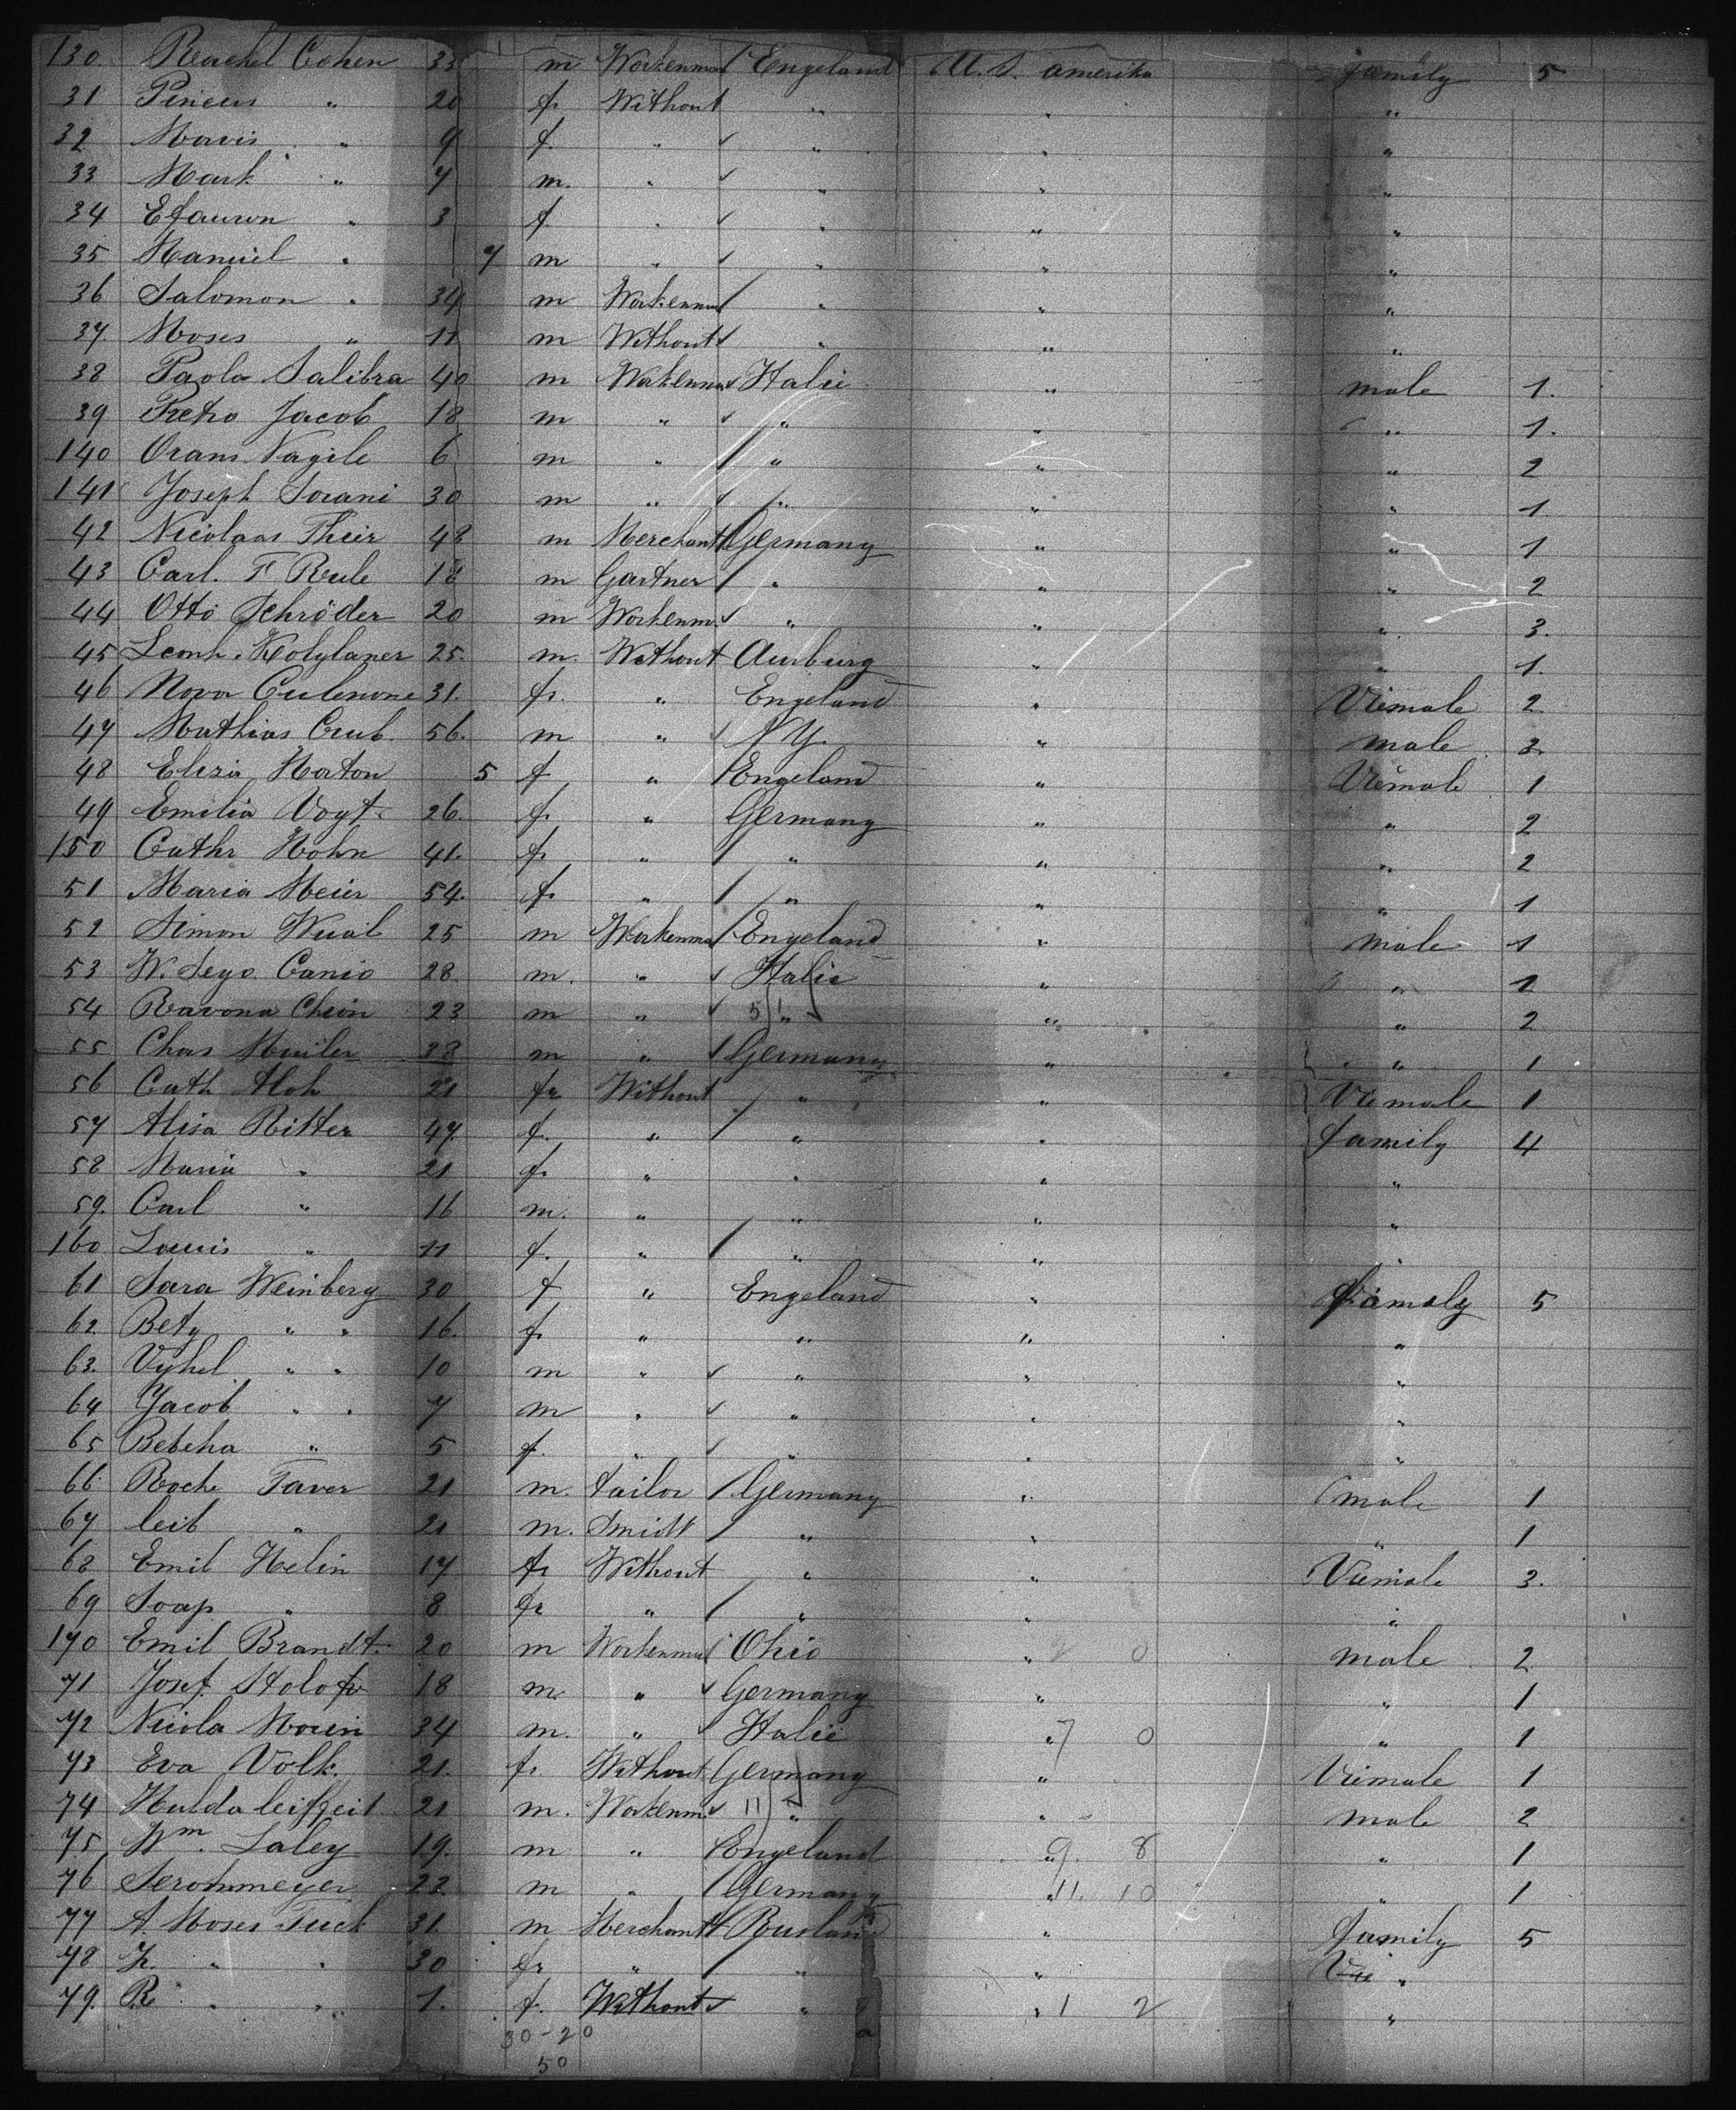 130. Reachel Cohen 33 m Workenman Engeland U.S. amerika family 5
31 Pincus " 20 fr Without " " "
32 Morris " 9 f. " " " "
33 Mark " 7 m. " " " "
34 " 3 f. " " " "
35 Manuel " 7 m " " " "
36 Salomon " 34 m Workenman " " "
37. Moses " 11 m Without " " "
38 Paola Salibra 40 m Workenman Italie " male 1.
39 Pietro Jacob 18 m " " " " 1.
140 Orans Nagile 6 m " " " " 2
141 Joseph Sorani 30 m " " " " 1
42 Nicolaas Their 48 m Merchant Germany " " 1
43 Carl. F Rule 18 m Gartner " " " 2
44 Otto Schröder 20 m Workenm. " " " 3.
45 Leonh. 25. m. Without " " 1.
46 Nova 31. fr. " Engeland " Viemale 2
47 Mathias Crub. 56. m " N Y. " male 3
48 Eliza Horton 5 f " Engeland " Viemale 1
49 Emilia Vogt. 26. fr " Germany " " 2
150 Cathr Hohn 41. fr " " " " 2
51 Maria Meier 54. fr " " " " 1
52 Simon 25 m Workenman Engeland " male 1
53 W. Sego Canio 28 m. " Italie " " 1
54 Ravona Chion 23 m " 5) " " " 2
55 Chas Muiler 38 m " Germany " " 1
56 Cath Aloh 21 fr Without " " Viemale 1
57 Alisa Ritter 47. f. " " " family 4
58 Maria " 21 fr " " " "
59. Carl " 16 m. " " " "
160 Louis " 11 f. " " " "
61 Sara Weinberg 30 f " Engeland " Family 5
62 Bety " " 16. fr " " " "
63. Vyhel " " 10 m " " " "
64 Jacob " " 7 m " " " "
65 Bebcha " 5 f. " " " "
66 Roche Faver 21 m. tailor Germany " male 1
67 leib " 21 m. Smidt " " " 1
68 Emil Helin 17 fr Without " " Viemale 3.
69 Soap " 8 fr " " " "
170 Emil Brandt. 20 m Workenman Ohio " 0 male 2
71 Josef. 18 m. " Germany " " 1
72 Nicola Morin 34 m. " Italie " 7 0 " 1
73 Eva Volk. 21. fr. Without Germany " Viemale 1
74 Hulda 21 m. Workenm. 11) " " male 2
75 Wm. Laley 19. m " Engeland " 9. 8 " 1
76 Serommeyer 22 m " Germany " 11. 10 " 1
77 A Moses Tuck 31. m Merchant Rusland " family 5
78 " " 30 fr " " " "
79. R " " 1. f. Without " " 1 2 "
30-20
50